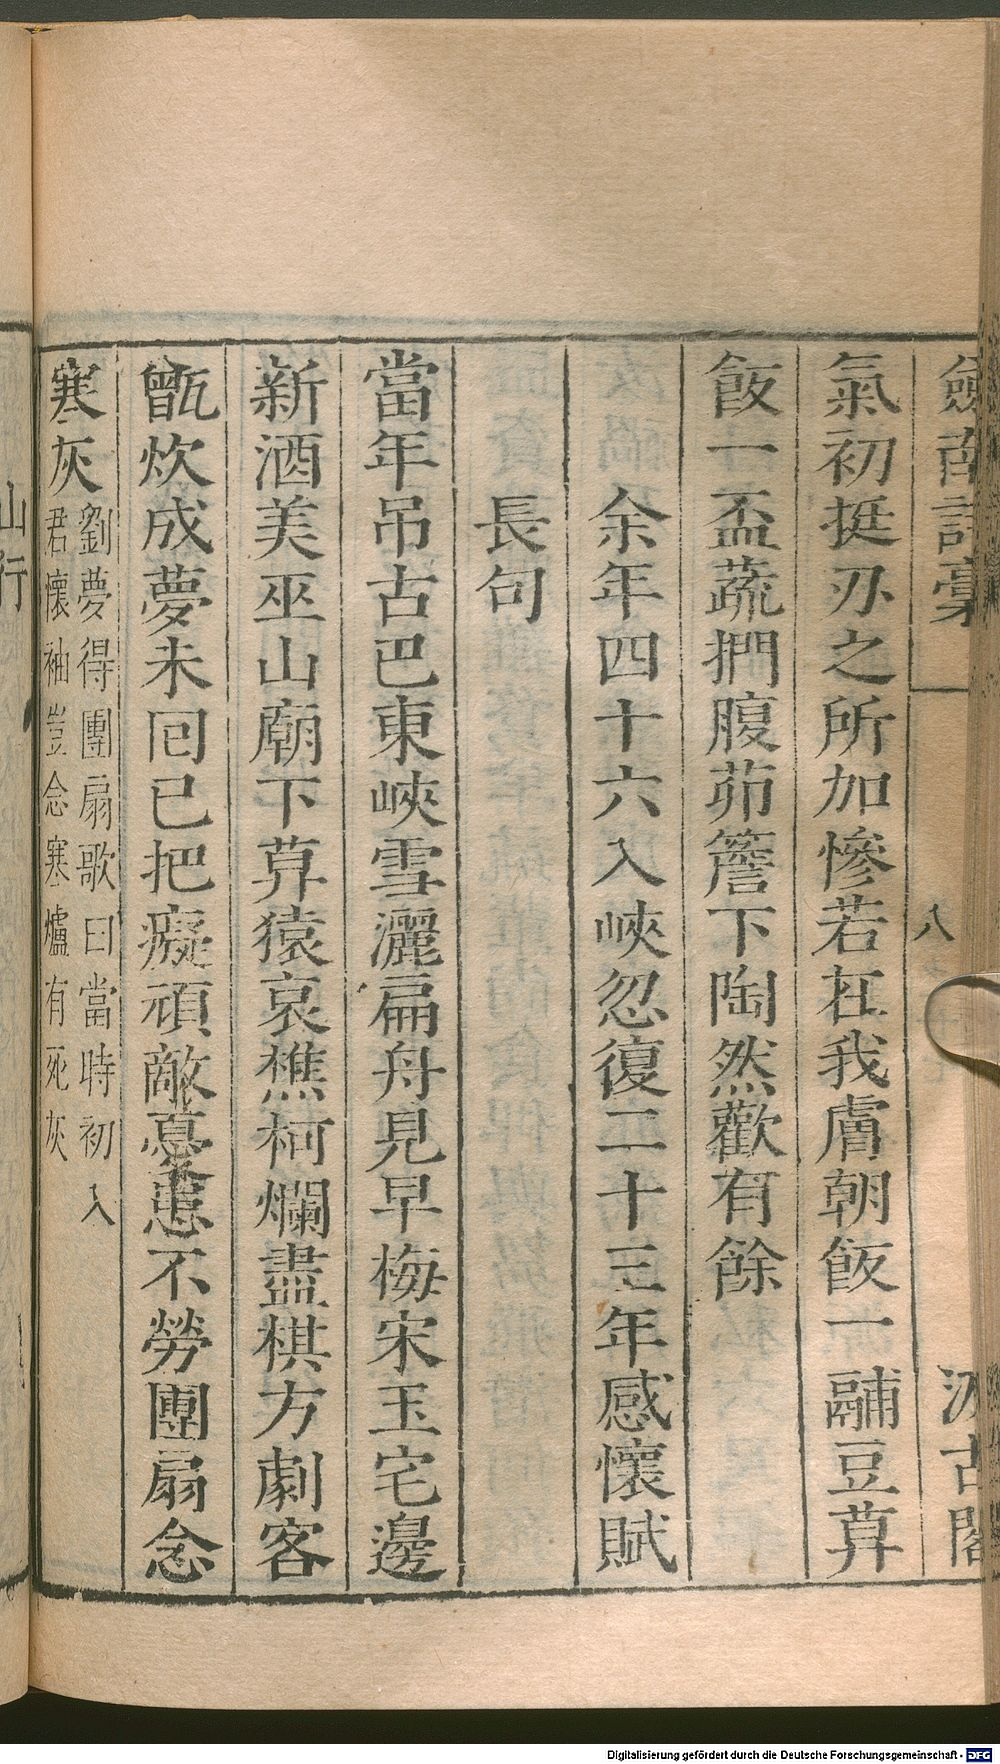 劒南詩槀
八
汲古閣
氣初挺刃之所加慘若在我膚朝飯一鬴豆莫
飯一盃蔬捫腹茆簷下陶然歡有餘
余年四十六入峽忽復二十三年感懷賦
長句
當年弔古巴東峽雪灑扁舟見早梅宋玉宅邊
新酒美巫山廟下莫猿哀樵柯爛盡棋方劇客
甑炊成夢未回已把癡頑敵憂患不勞團扇念
寒灰
劉夢得團扇歌曰當時初入
君懷袖豈念寒爐有死灰
山行
Digitalisierung gefördert durch die Deutsche Forschungsgemeinschaft - DFG